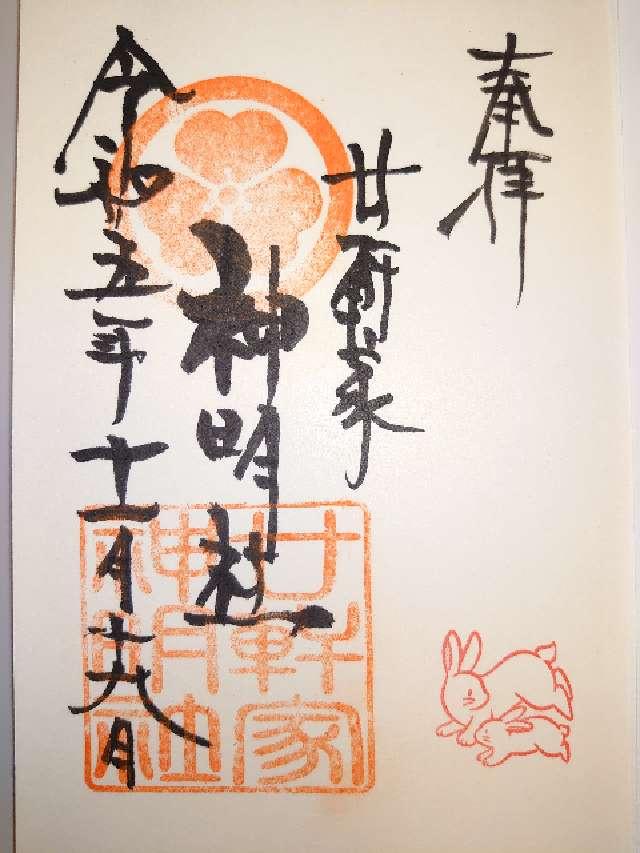 奉拝
廿軒家
神明社
令和五年十一月十九日
廿軒家
神明社
神明社